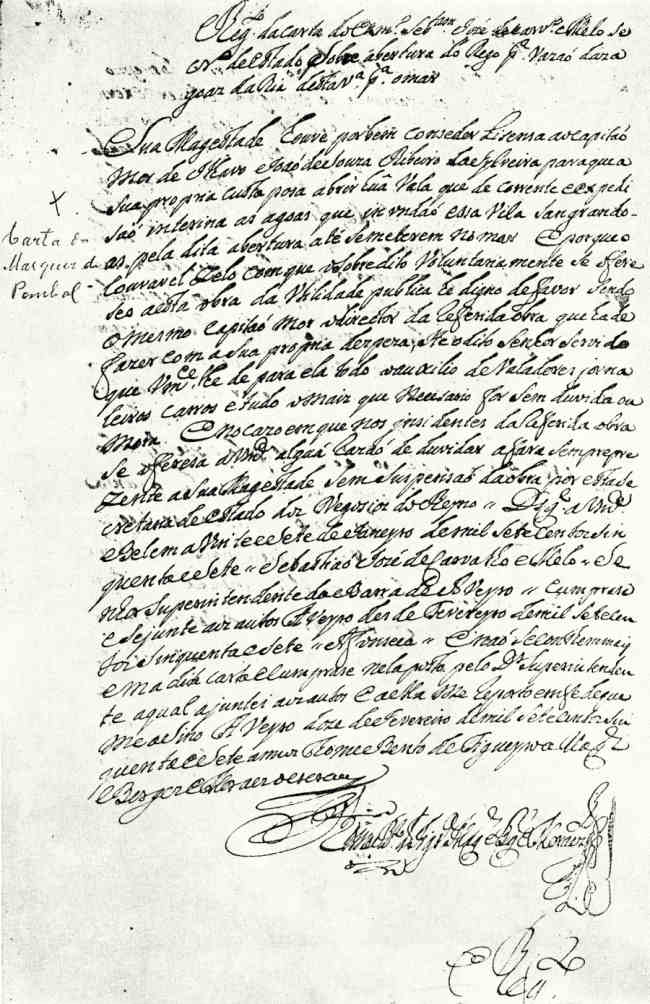 Reg.to da carta do Exm.o Sebastiam José de Carv.o e Melo se
cr.o de estado sobre abertura do Rego p.a vazaó das a
goaz da Ria desta v.a p.a o mar
Sua Magestade houve por bem conseder Lisensa ao capitaó
Mor de Ilhavo Joaó de Souza Ribeiro da Sylveira para que a
sua propria custa posa abrir huã Vala que de corrente e expedi
saó interina as agoas que inundaó essa Vila sangrando-
as pela dita abertura até se meterem no mar E porque o
louvavel zelo com que o sobredito Voluntariamente se ofere
seo a esta obra da Utilidade publica he digno de favor sendo
o mesmo Capitaó Mor o director da referida obra que ha de
fazer com a sua propria despeza, He o dito Senhor servido
que Vm.ce lhe de para ela todo o auxilio de Valadores jorna
leiros carros e tudo o maiz que Necesario for sem duvida ou
Mora E no cazo em que nos insidentes da referida obra
se oferesa a Vm.ce alguã razaó de duvidar a fara sempre pre
zente a Sua Magestade sem suspensaó da obra por esta se
cretaria de estado doz Negocioz do Reyno D.s g.e a Vm.ce
Belem a Vinte e sete de Janeyro de mil sete centos sin
quenta e sete Sebastiaó José de Carvalho e Melo Se
nhor Superintendente da Barra de AVeyro Cumprase
e se junte aoz autos AVeyro des de Fevereyro de mil sete cen
tos sinquenta e sete Afonseca E naó se continha maiz
em a dita carta e cumprase nela posto pelo D.r Superintenden
te a qual ajuntei aoz autos e a ella me reporto em fe de que
me asino AVeyro doze de Fevereiro de mil sete centos sin
quenta e sete anos Thome Bento de Figueyroa
e Borges e Moraes o escrevy
X
Carta do
Marquez de
Pombal